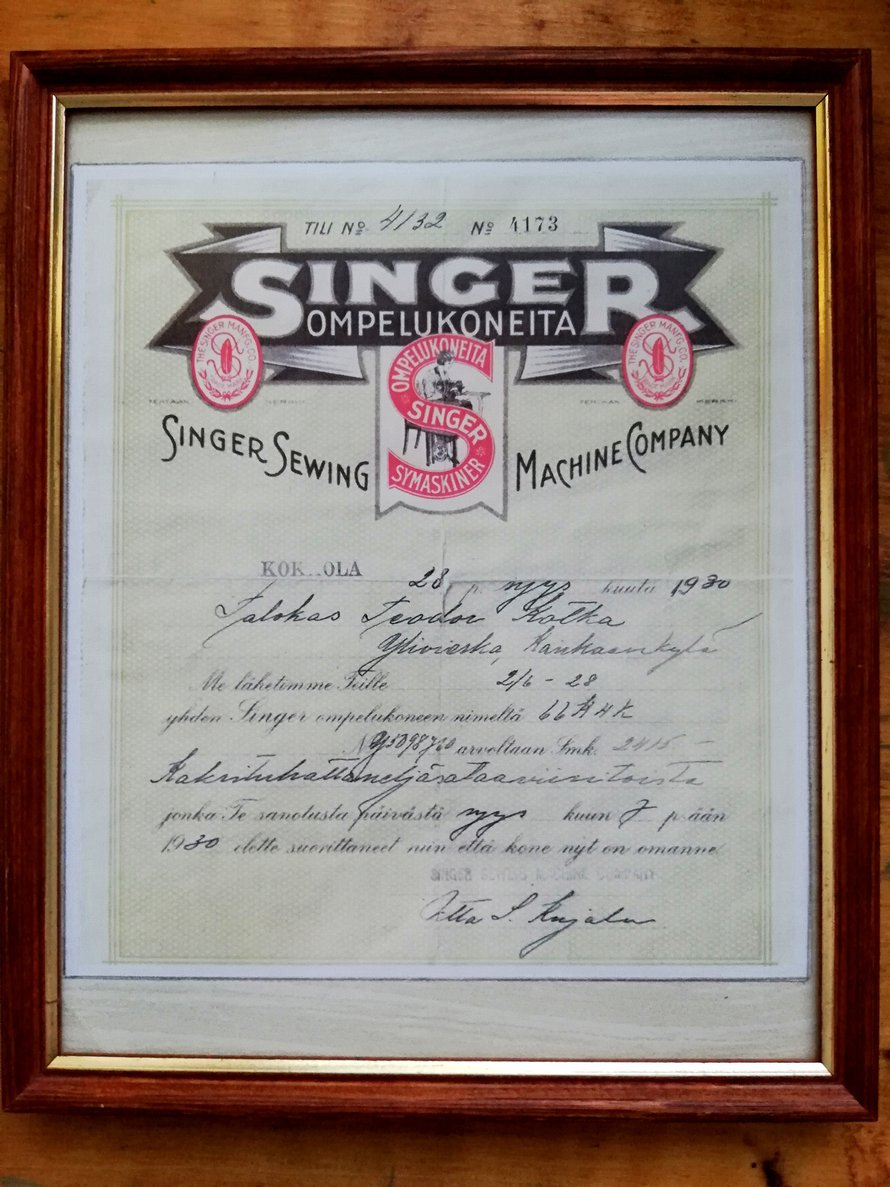 TILI No 4132 No 4173
SINGER
OMPELUKONEITA
THE SINGER MANFG. CO.
TRADE MARK
THE SINGER MANFG. CO.
TRADE MARK
OMPELUKONEITA
SINGER
SYMASKINER
SINGER SEWING MACHINE COMPANY
KOK..OLA 28 p. nyys kuuta 1930
Talokas Teodor Kotka
Ylivieska, Kankaankylä
Me lähetimme Teille 2/6 - 28
yhden Singer ompelukoneen nimeltä 66 A 4 K
N Y5098760 arvoltaan Smk. 2415 –
Kaksituhattaneljäsataaviisitoista
jonka Te sanotusta päivästä nyys kuun 7 p:ään
1930 olette suorittaneet niin että kone nyt on omanne
SINGER SEWING MACHINE COMPANY
S. Kujala